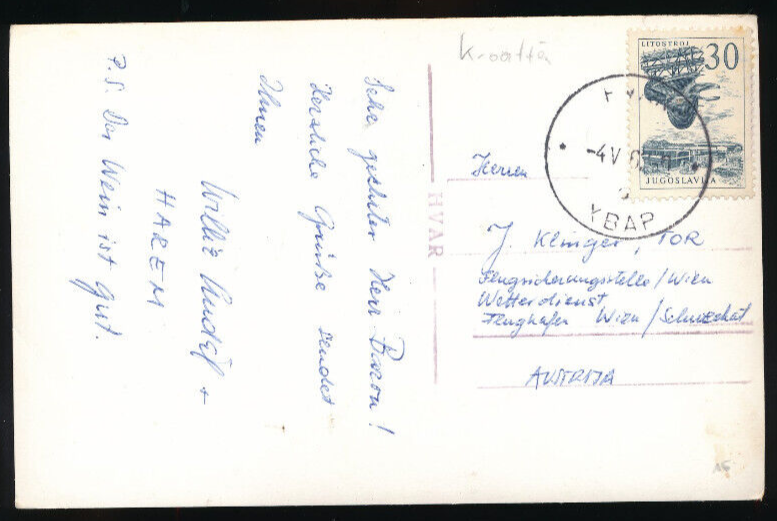 Kroatia
Sehr geehrter Herr Baron!
Herzliche Grüße sendet
Ihnen
Willi Rudolf +
HAREM
P.S. Der Wein ist gut.
HVAR
LITOSTROJ
30
JUGOSLAVIJA
-4.V.6
ХВАР
Herren
J. Klinger, TOR
Flugsicherungsstelle/Wien
Wetterdienst
Flughafen Wien/Schwechat
AUSTRIJA